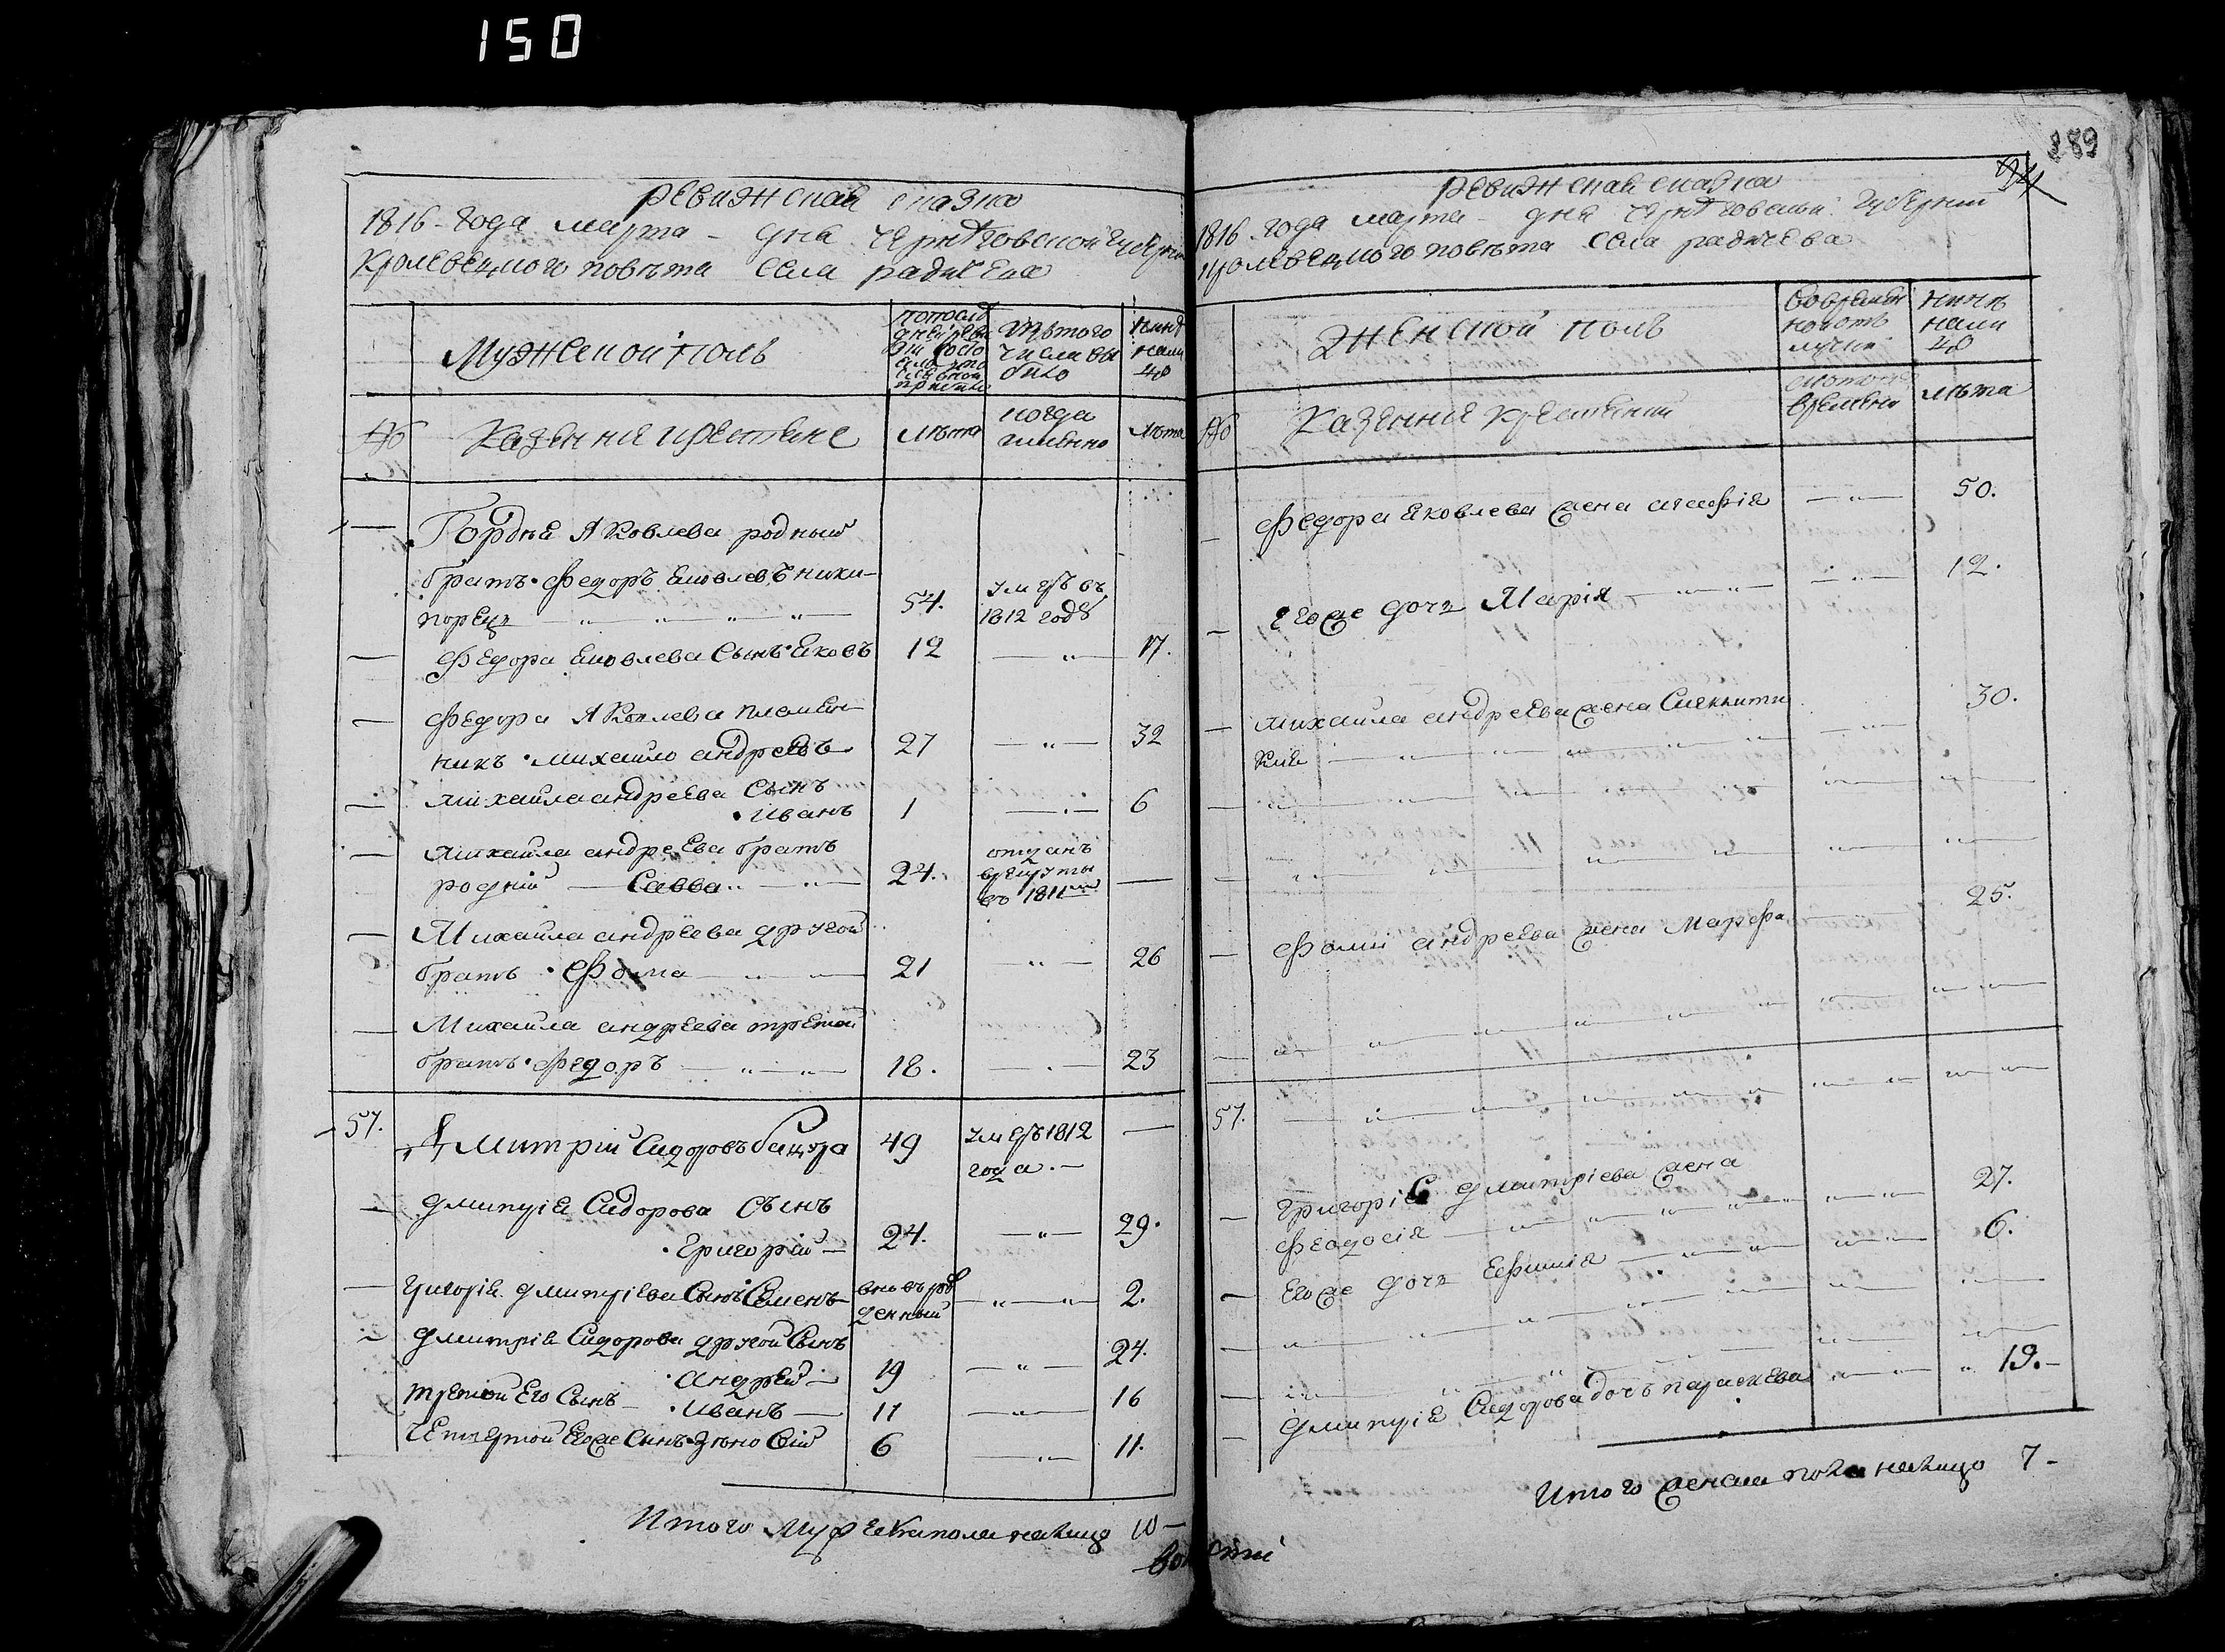 150
ревижская сказка
1816 года марта – дня Черниговской губернии
Кролевецкого повѣта села радичева
Мужеской полъ
изъ того
числа вы
было
нынѣ
нали
цо
№
Казенние крестяне
лѣта
когда
именно
лѣта
Гордѣя Яковлева родный
братъ Федоръ яковлевъ ники-
порецъ 54. умеръ въ
1812 году
Федора яковлева сынъ яковъ 12 17.
Федора Яковлева племен-
никъ михайло андреевъ 27 32
михайла андреева сынъ
иванъ 1 6
михайла андреева братъ
родній Савва 24. отданъ
врекруты
въ 1811м
Михайла андреева другой
братъ Фома 21 26
Михайла андреева третой
братъ Федоръ 18. 23
57. Дмитрій Сидоровъ 49 умеръ 1812
года.
дмитрія Сидорова Сынъ
Григорій 24. 29.
григорія дмитріева Сынъ Семенъ вновърож
денный 2.
дмитрія Сидорова другой Сынъ
андрей 19 24.
третой Его Сынъ Иванъ 11 16
Четвертой Егоже Сынъ Зѣновій 6 11.
Итого мужеска пола налицо 10
389
ревижская сказка
1816 года марта – дня Черниговской губернии
кролевецкого повѣта села радичева
Женской полъ
вовремен
ной отъ
лучки
нинѣ
нали
цо
№
Казенние крестянии
времени
лѣта
Федора яковлева жена агафія 50.
егоже дочь Марія 12.
михайла андреева жена 30.
Фоми андреева жена Марфа 25.
57.
григорія дмитріева жена
Феодосія 27.
Егоже дочь Евфимія 6.
дмитрія Сидорова дочь параскева 19.
Итого женска пола налицо 7